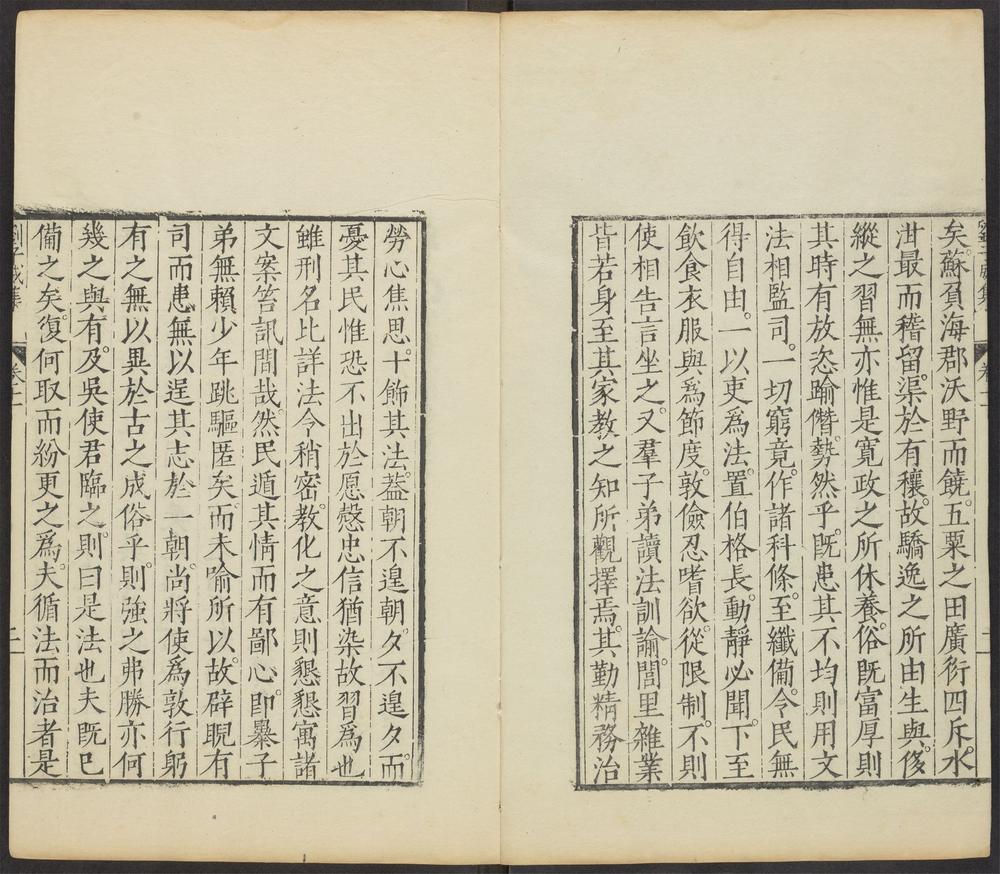 矣。蘇負海郡沃野而饒。五粟之田廣衍四斥。水
泔最而稽留。渠於有穰。故驕逸之所由生與。侈
縱之習無亦惟是寬政之所休養。俗既富厚則
其時有放恣踰僭。勢然乎。既患其不均則用文
法相監司。一切窮竟。作諸科條。至纖備。令民無
得自由。一以吏為法。置伯格長。動靜必聞。下至
飲食衣服與為節度。敦儉忍嗜欲。從限制。不則
使相告言坐之。又羣子弟讀法訓諭。閭里雜業
皆若身至其家教之知所觀擇焉。其勤精務治
勞心焦思。十飾其法。葢朝不遑朝。夕不遑夕。而
憂其民惟恐不出於愿愨忠信猶染故習為也
雖刑名比詳法令稍密。教化之意則懇懇寓諸
文案笞訊間哉。然民遁其情而有鄙心。即暴子
弟無賴少年跳驅匿矣。而未喻所以。故辟睨有
司而患無以逞其志於一朝。尚將使為敦行躬
有之無以異於古之成俗乎。則強之弗勝亦何
幾之與有。及吳使君臨之。則曰是法也夫既已
備之矣。復何取而紛更之為。夫循法而治者是
劉子威集
卷十二
二